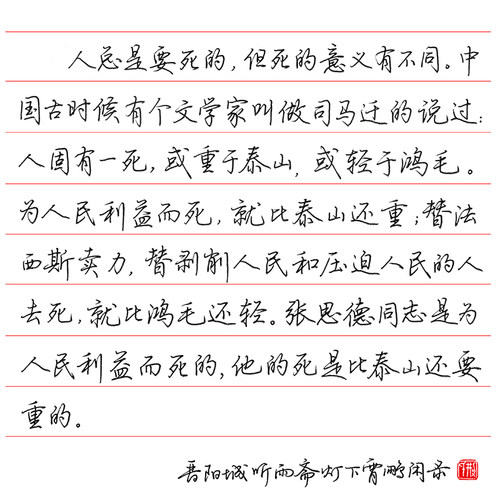 人总是要死的，但死的意义有不同。中
国古时候有个文学家叫做司马迁的说过：
人固有一死，或重于泰山，或轻于鸿毛。
为人民利益而死，就比泰山还重；替法
西斯卖力，替剥削人民和压迫人民的人
去死，就比鸿毛还轻。张思德同志是为
人民利益而死的，他的死是比泰山还要
重的。
晋阳城听雨斋灯下霄鹏闲录